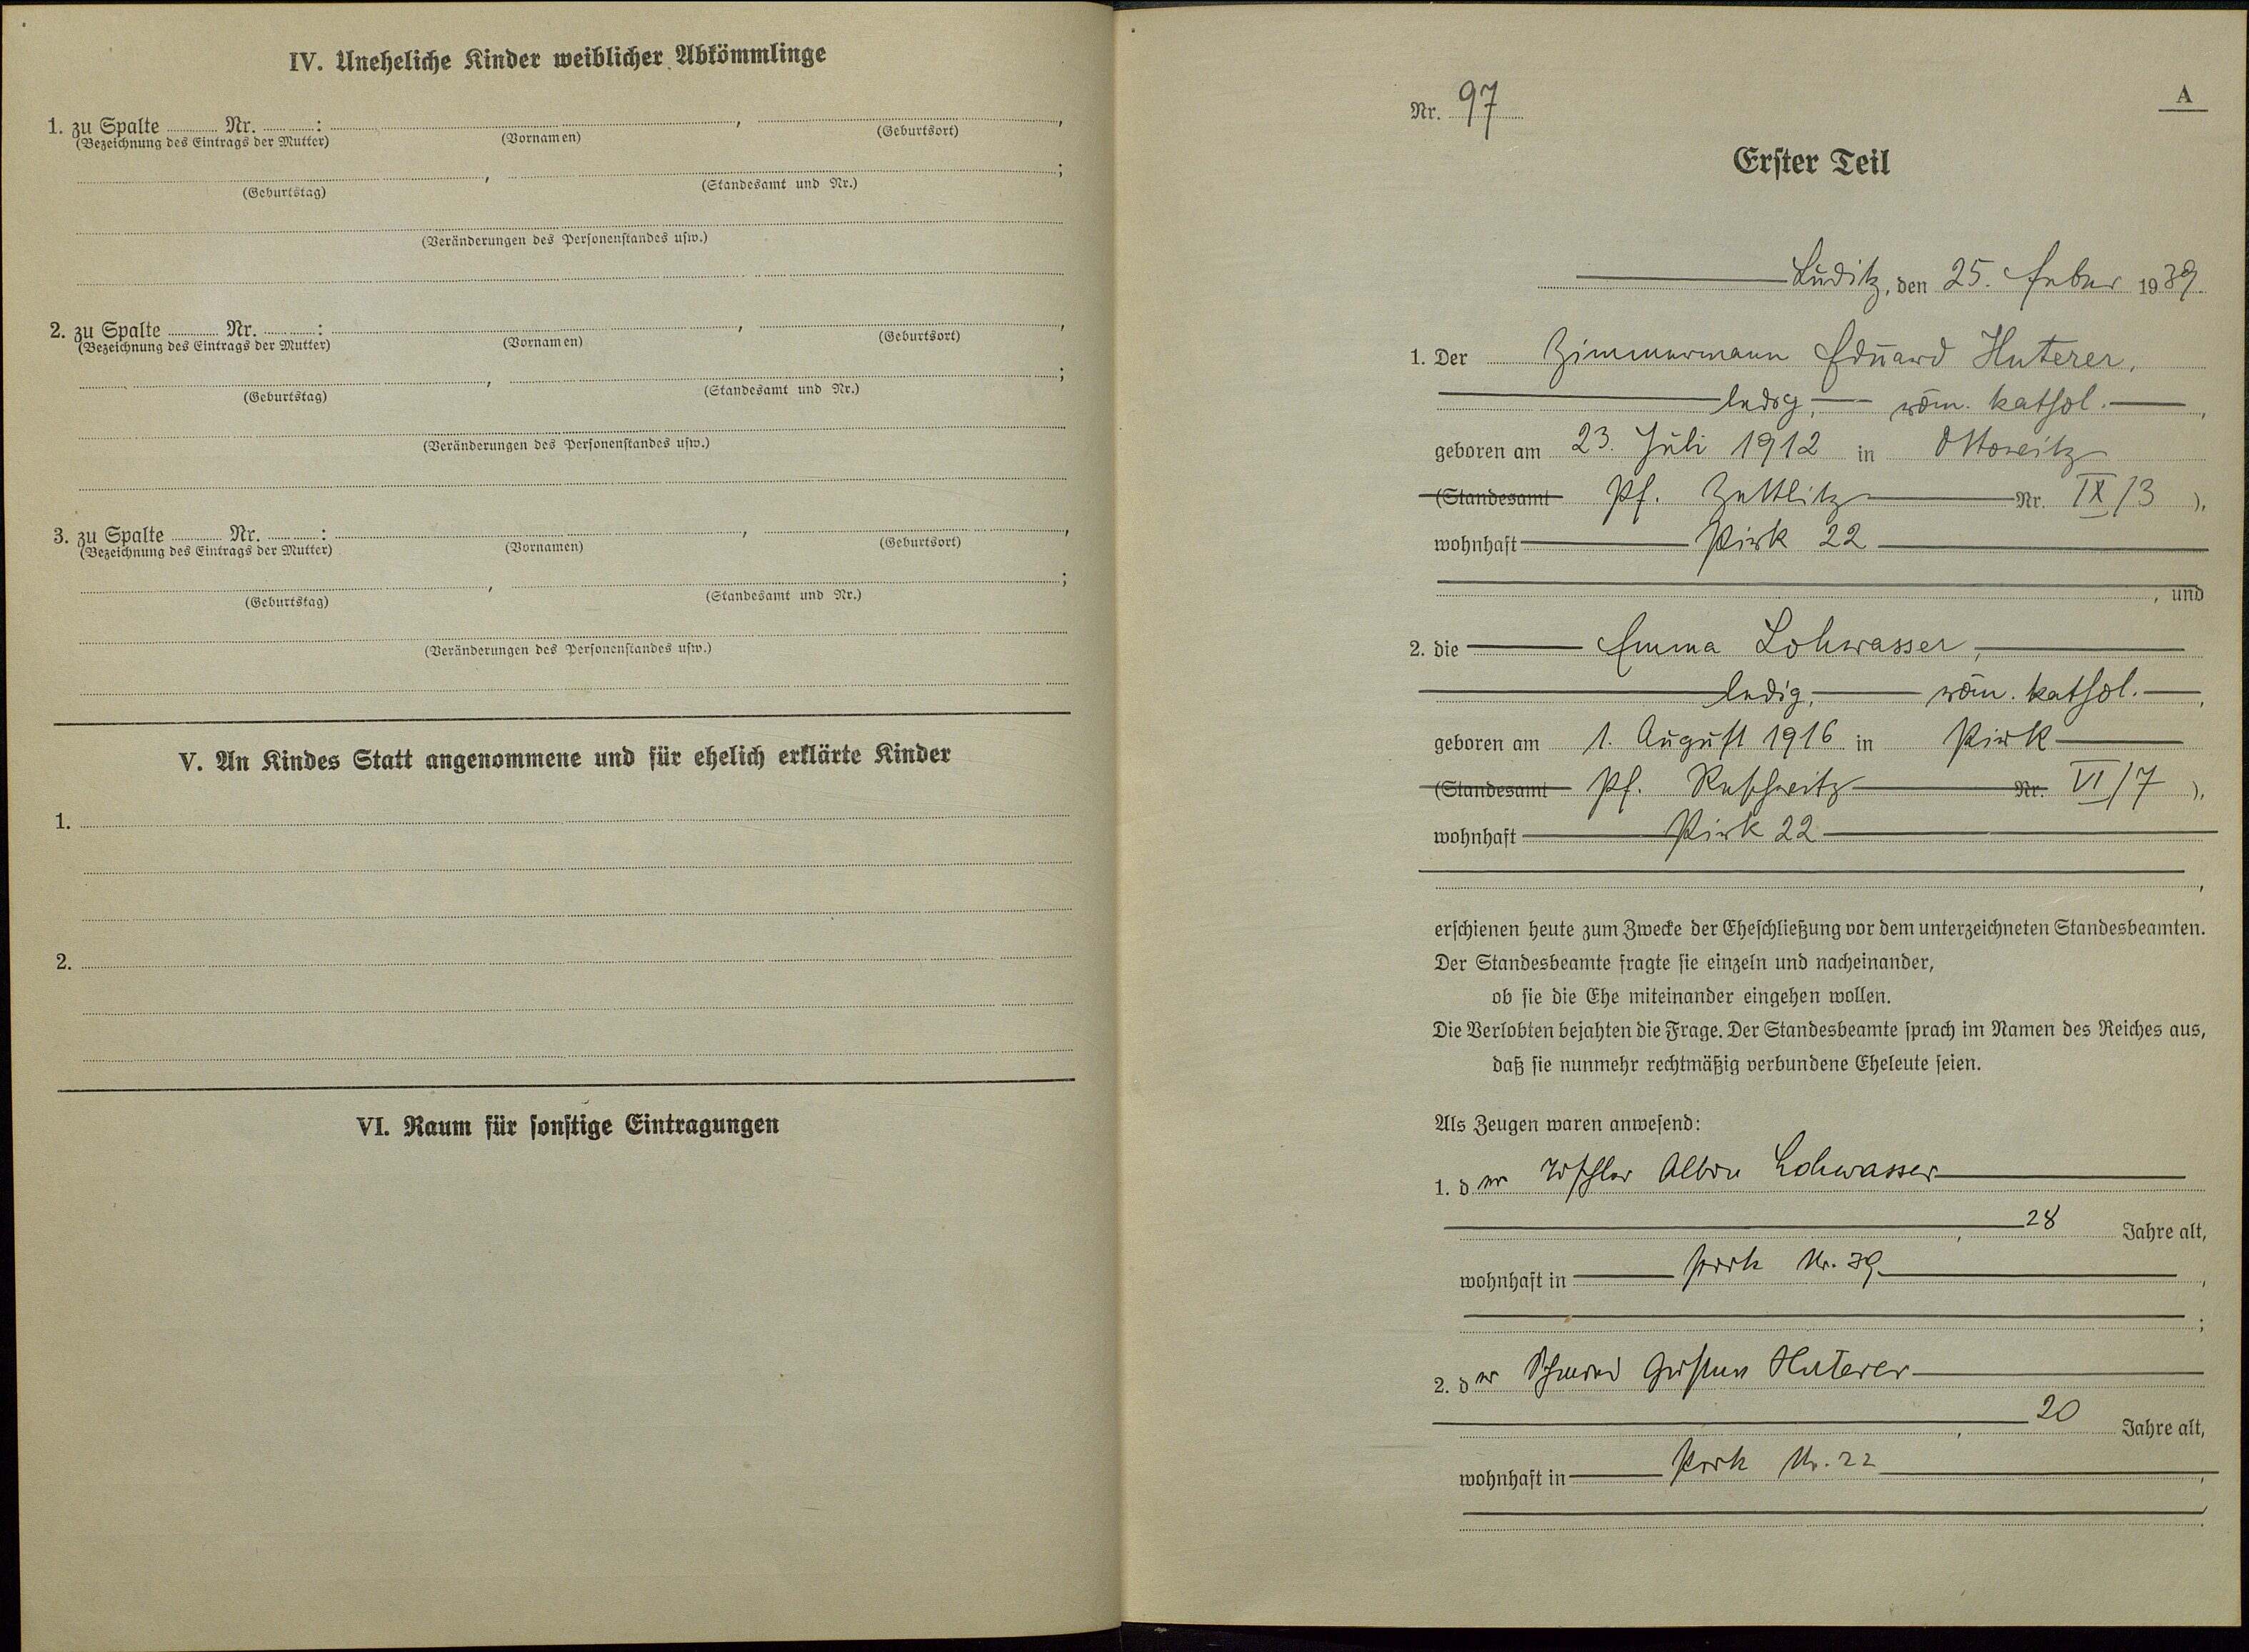 IV. Uneheliche Kinder weiblicher Abkömmlinge
1. zu Spalte ........ Nr. ........: ........, ........,
(Bezeichnung des Eintrags der Mutter) (Vornamen) (Geburtsort)
........, ........;
(Geburtstag) (Standesamt und Nr.)
(Veränderungen des Personenstandes usw.)
2. zu Spalte ........ Nr. ........: ........, ........,
(Bezeichnung des Eintrags der Mutter) (Vornamen) (Geburtsort)
........, ........;
(Geburtstag) (Standesamt und Nr.)
(Veränderungen des Personenstandes usw.)
3. zu Spalte ........ Nr. ........: ........, ........,
(Bezeichnung des Eintrags der Mutter) (Vornamen) (Geburtsort)
........, ........;
(Geburtstag) (Standesamt und Nr.)
(Veränderungen des Personenstandes usw.)
V. An Kindes Statt angenommene und für ehelich erklärte Kinder
1.
2.
VI. Raum für sonstige Eintragungen
A
Nr. 97
Erster Teil
Luditz, den 25. Feber 1939.
1. Der Zimmermann Eduard Huterer,
ledig, röm. kathol.,
geboren am 23. Juli 1912 in Ottowitz
(Standesamt Pf. Zettlitz Nr. IX/3),
wohnhaft Pirk 22
, und
2. die Emma Lohwasser,
ledig, röm. kathol.,
geboren am 1. August 1916 in Pirk
(Standesamt Pf. Nr. VI/7),
wohnhaft Pirk 22
,
erschienen heute zum Zwecke der Eheschließung vor dem unterzeichneten Standesbeamten.
Der Standesbeamte fragte sie einzeln und nacheinander,
ob sie die Ehe miteinander eingehen wollen.
Die Verlobten bejahten die Frage. Der Standesbeamte sprach im Namen des Reiches aus,
daß sie nunmehr rechtmäßig verbundene Eheleute seien.
Als Zeugen waren anwesend:
1. der Tischler Albin Lohwasser
, 28 Jahre alt,
wohnhaft in Pirk Nr. 39,
;
2. der Schmied Gustav Huterer
, 20 Jahre alt,
wohnhaft in Pirk Nr. 22,